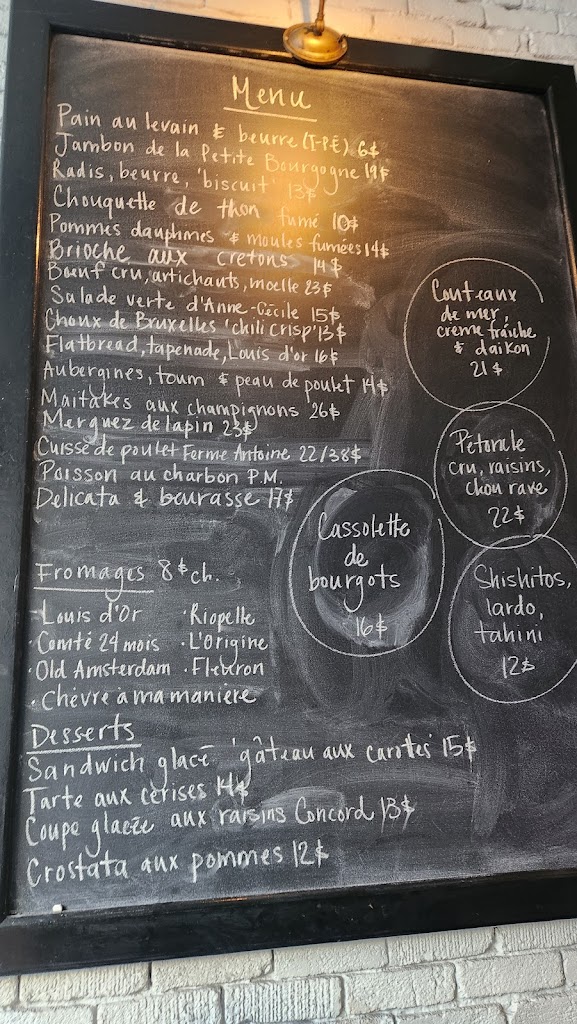 Menu
Pain au levain & beurre (I-P-E) 6$
Jambon de la Petite Bourgogne 19$
Radis, beurre, 'biscuit' 13$
Chouquette de thon fumé 10$
Pommes dauphines & moules fumées 14$
Brioche aux cretons 14$
Bœuf cru, artichauts, moelle 23$
Salade verte d'Anne-Cécile 15$
Choux de Bruxelles 'chili crisp' 13$
Flatbread, tapenade, Louis d'or 16$
Aubergines, toum & peau de poulet 14$
Maitakes aux champignons 26$
Merguez de lapin 23$
Cuisse de poulet Ferme Antoine 22/38$
Poisson au charbon P.M.
Delicata & beurasse 17$
Couteaux
de mer,
crème fraîche
& daikon
21$
Pétoncle
cru, raisins,
chou rave
22$
Cassolette
de
bourgots
16$
Shishitos,
lardo,
tahini
12$
Fromages 8$ ch.
- Louis d'Or
· Comté 24 mois
· Old Amsterdam
· Chèvre à ma manière
· Riopelle
· L'Origine
· Fleuron
Desserts
Sandwich glacé 'gâteau aux carottes' 15$
Tarte aux cerises 14$
Coupe glacée aux raisins Concord 13$
Crostata aux pommes 12$